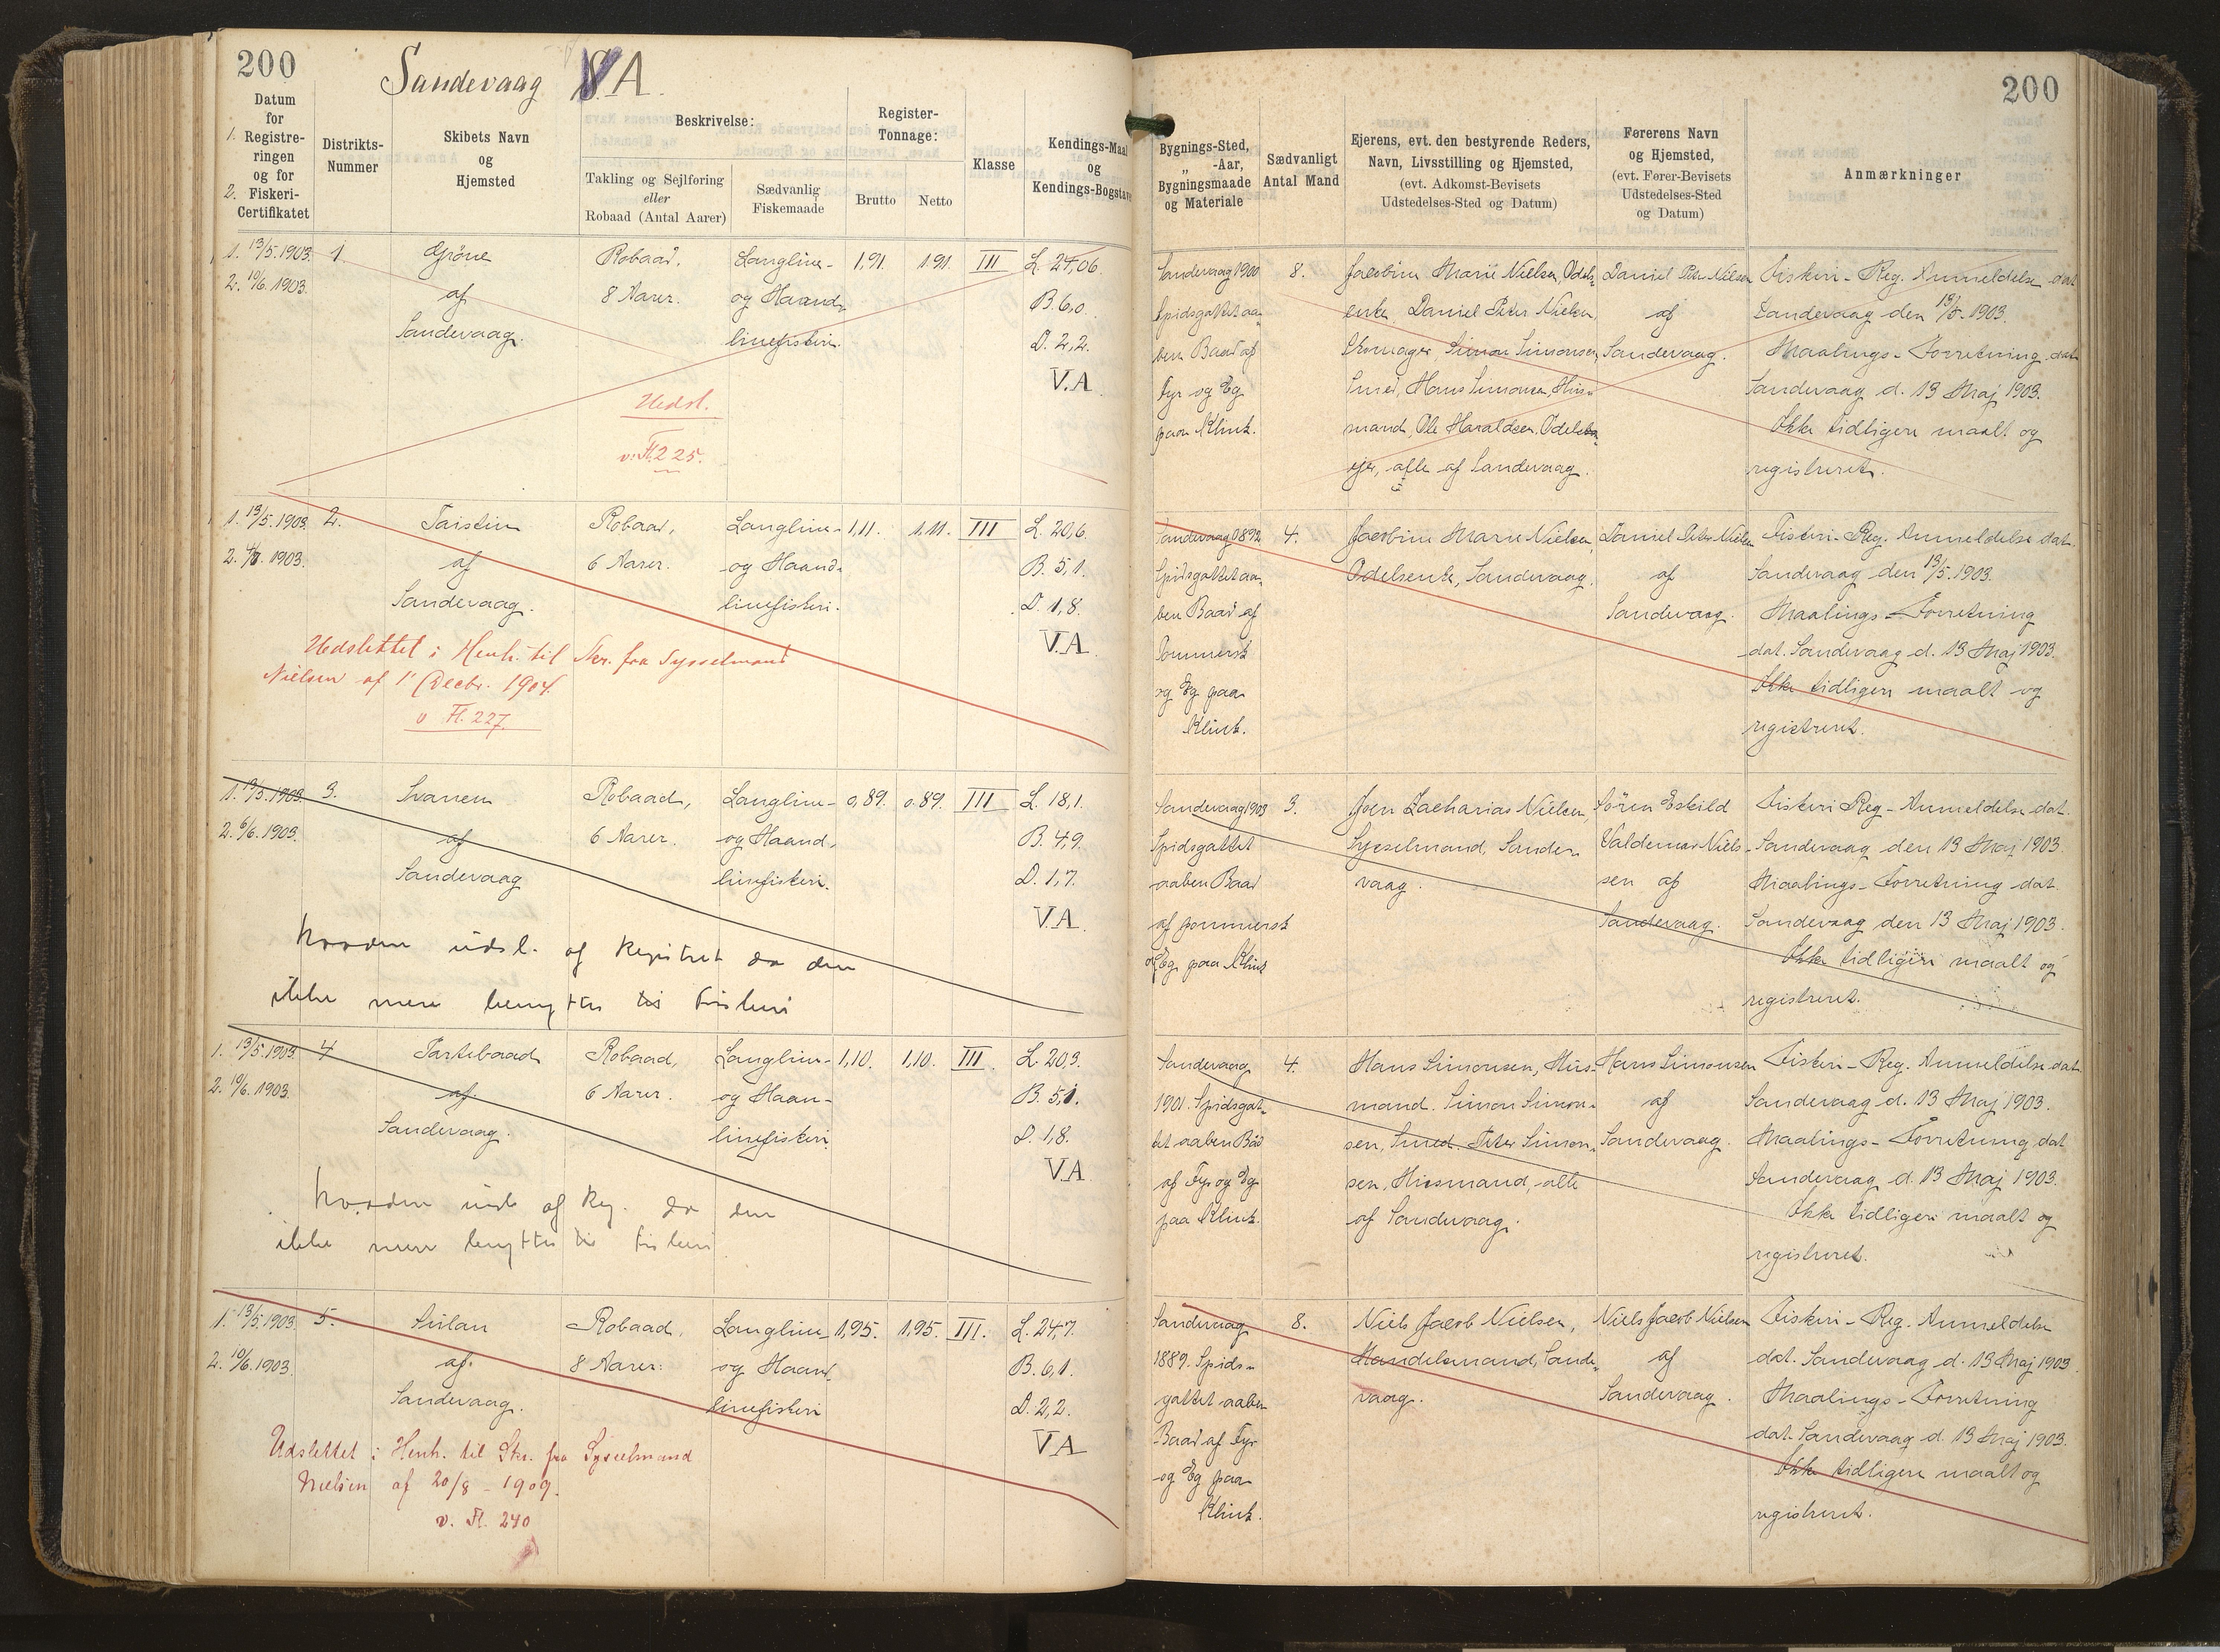 200
Sandevaag V.A.
Datum
for
1. Registre-
ringen
og for
2. Fiskeri-
Certifikatet
Distrikts-
Nummer
Skibets Navn
og
Hjemsted
Beskrivelse:
Takling og Sejlføring
eller
Robaad (Antal Aarer)
Sædvanlig
Fiskemaade
Register-
Tonnage:
Brutto
Netto
Klasse
Kendings-Maal
og
Kendings-Bogstave
1. 13/5. 1903. 1. Robaad. Langline- 1,91. 1.91. III L. 24,06
2. 10/6. 1903. af 8 Aarer. og Haand- B. 6,0.
Sandevaag. linefiskeri. D. 2,2.
V.A
Udsl.
v. Fl. 225.
1. 13/5. 1903. 2. Taistin Robaad, Langline- 1,11. 1,11. III L. 20,6.
2. 1903. af 6 Aarer. og Haand- B. 5,1.
Sandevaag. linefiskeri. D. 1,8.
V.A
Udslettet i Henh. til Skr. fra Sysselmand
Nielsen af 1' Decbr. 1904.
v Fl. 227.
1. 13/5. 1903. 3. Svanen Robaad, Langline- 0,89. 0.89. III L. 18,1.
2. 6/6. 1903. af 6 Aarer. og Haand- B. 4,9.
Sandevaag linefiskeri. D. 1,7.
V.A.
baaden udsl. af Registret da den
ikke mere benyttes til Fiskeri
1. 13/5. 1903. 4 Tartebaad Robaad, Langline- 1,10. 1,10. III. L. 20,3.
2. 10/6. 1903. af. 6 Aarer. og Haan- B. 5,1.
Sandevaag. linefiskeri. D. 1,8.
V.A
baaden udsl af Reg. da den
ikke mere benyttes til Fiskeri
1. 13/5. 1903 5. Súlan Robaad, Langline- 1,95. 1,95. III. L. 24,7.
2. 10/6. 1903. af. 8 Aarer. og Haand- B. 6,1.
Sandevaag. linefiskeri D. 2,2.
V.A
Udslettet i Henh. til Skr. fra Sysselmand
Nielsen af 20/8 - 1909.
v. Fl. 240
200
Bygnings-Sted,
„ -Aar,
Bygningsmaade
og Materiale
Sædvanligt
Antal Mand
Ejerens, evt. den bestyrende Reders,
Navn, Livsstilling og Hjemsted,
(evt. Adkomst-Bevisets
Udstedelses-Sted og Datum)
Førerens Navn
og Hjemsted,
(evt. Fører-Bevisets
Udstedelses-Sted
og Datum)
Anmærkninger
Sandevaag 1900 8. Jacobine Marie Nielsen, Odels- Daniel Peter Nielsen Fiskeri-Reg. Anmeldelse dat
Spidsgattet aa- enke, Daniel Peter Nielsen, af Sandevaag den 13/5. 1903.
ben Baad af Skomager, Simon Simonsen, Sandevaag. Maalings-Forretning dat
Fyr og Eg Smed, Hans Simonsen, Hus- Sandevaag d. 13 Maj 1903.
paa Klink. mand, Ole Haraldsen, Odelsbo- Ikke tidligere maalt og
ejer, alle af Sandevaag. registreret.
Sandevaag 1892 4. Jacobine Marie Nielsen, Daniel Peter Nielsen Fiskeri-Reg. Anmeldelse dat.
Spidsgattet aa- Odelsenke, Sandevaag. af Sandevaag den 13/5. 1903.
ben Baad af Sandevaag. Maalings-Forretning
Pommersk dat. Sandevaag d. 13 Maj 1903.
og Eg paa Ikke tidligere maalt og
Klink. registreret.
Sandevaag 1903 3. Joen Zacharias Nielsen, Sören Eskild Fiskeri Reg-Anmeldelse dat.
Spidsgattet Sysselmand, Sande- Valdemar Niels- Sandevaag den 13 Maj 1903.
aaben Baad vaag. sen af Maalings-Forretning dat.
af pommersk Sandevaag. Sandevaag den 13 Maj 1903.
og Eg paa Klink Ikke tidligere maalt og
registreret.
Sandevaag 4. Hans Simonsen, Hus- Hans Simonsen Fiskeri-Reg. Anmeldelse dat.
1901. Spidsgat- mand. Simon Simon- af Sandevaag d. 13 Maj 1903.
tet aaben Båd sen, Smed. Peter Simon- Sandevaag. Maalings-Forretning dat
af Fyr og Eg sen, Husmand, alle Sandevaag d. 13 Maj 1903.
paa Klink. af Sandevaag. Ikke tidligere maalt og
registreret.
Sandevaag 8. Niels Jacob Nielsen, Niels Jacob Nielsen Fiskeri-Reg. Anmeldelse
1889. Spids- Handelsmand, Sande- af dat. Sandevaag d. 13 Maj 1903.
gattet aaben vaag. Sandevaag. Maalings-Forretning
Baad af Fyr dat. Sandevaag d. 13 Maj 1903.
og Eg paa Ikke tidligere maalt og
Klink. registreret.